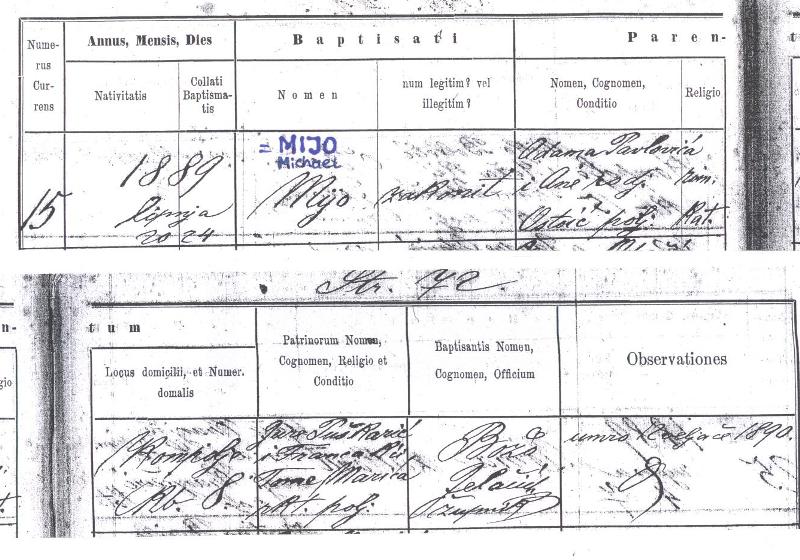 Nume-
rus
Cur-
rens
Annus, Mensis, Dies
Nativitatis
Collati
Baptisma-
tis
Baptisati
Nomen
num legitim? vel
illegitim?
Paren-
Nomen, Cognomen,
Conditio
Religio
15
1889
lipnja
20 24
= MIJO
Michael
Mijo
zakonit
Adama Pavlovića
i Ane rodj.
Ostoić polj.
rim.
Kat.
Str. 72
tum
Locus domicilii, et Numer.
domalis
Patrinorum Nomen,
Cognomen, Religio et
Conditio
Baptisantis Nomen,
Cognomen, Officium
Observationes
Kompolje
Kb. 8.
Jure Puškarić
i Franca
Tome Marića
rkt. polj.
Božo
Jelačić
župnik
umro veljače 1890.